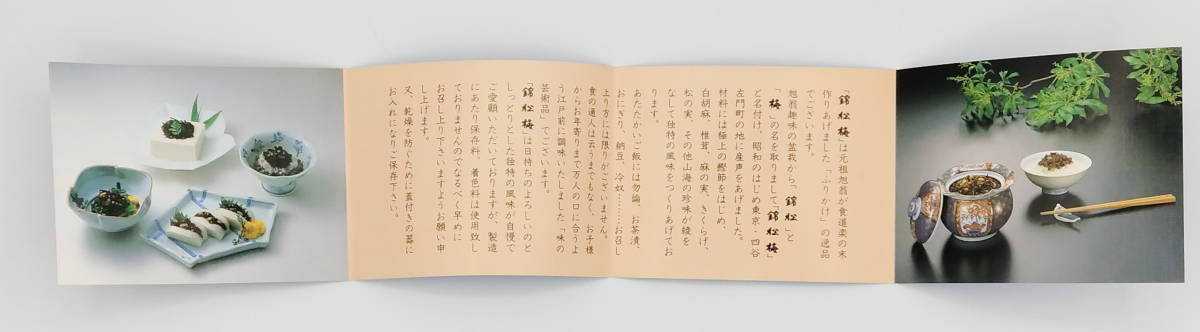 「錦松梅」は元祖旭翁が食道楽の末
作りあげました「ふりかけ」の逸品
でございます。
旭翁趣味の盆栽から「錦松」と
「梅」の名を取りまして「錦松梅」
と名付け、昭和のはじめ東京・四谷
左門町の地に産声をあげました。
材料には極上の鰹節をはじめ、
白胡麻、椎茸、麻の実、きくらげ、
松の実、その他山海の珍味が綾を
なして独特の風味をつくりあげてお
ります。
あたたかいご飯には勿論、お茶漬、
おにぎり、納豆、冷奴………お召し
上り方には限りがございません。
食の通人は云うまでもなく、お子様
からお年寄りまで万人の口に合うよ
う江戸前に調味いたしました「味の
芸術品」でございます。
「錦松梅」は日持ちのよろしいのと
しっとりとした独特の風味が自慢で
ご愛顧いただいておりますが、製造
にあたり保存料、着色料は使用致し
ておりませんのでなるべく早めに
お召し上り下さいますようお願い申
し上げます。
又、乾燥を防ぐために蓋付きの器に
お入れになりご保存下さい。